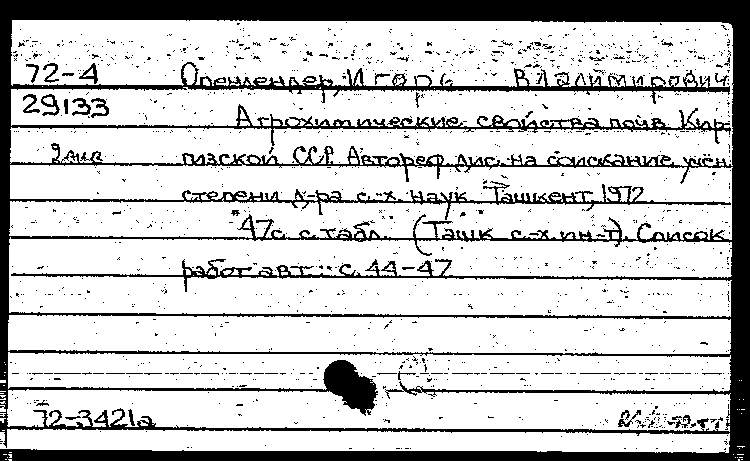 72-4 Игорь Владимирович
29133 Агрохимические свойства почв Кир-
2 экз гизской ССР. Автореф дис. на соискание учён
степени д-ра с.-х. наук. Ташкент, 1972.
47с. с табл. (Ташк с.-х. ин-т). Список
работ авт.: с. 44-47
72-3421а